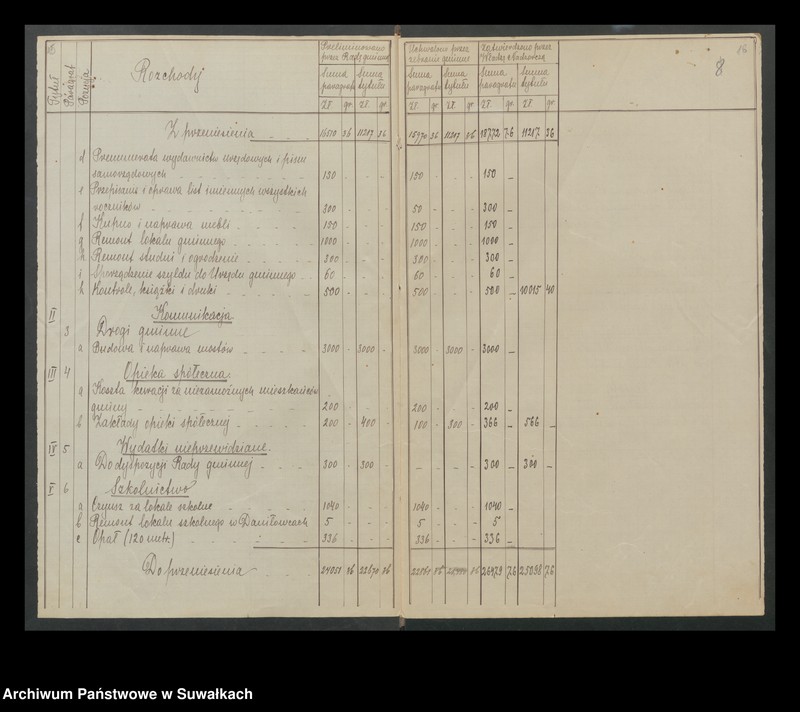 Tytuł Paragraf Pozycja Rozchody Preliminowano przez Radę gminną Uchwalono przez zebranie gminne Zatwierdzono przez Władzę Nadzorczą 8
Suma paragrafu Suma tytułu Suma paragrafu Suma tytułu Suma paragrafu Suma tytułu
Zł. gr. Zł. gr. Zł. gr. Zł. gr. Zł. gr. Zł. gr.
Z przeniesienia 36 11217 36 36 11217 18772 76 11217 36
d Prenumerata wydawnictw urzędowych i pism
samorządowych 150 - - - 150 - - - 150 -
e Przepisanie i oprawa list imiennych wszystkich
roczników 300 - - - 50 - - - 300 -
f Kupno i naprawa mebli 150 - - - 150 - - - 150 -
g Remont lokalu gminnego 1000 - - - 1000 - - - 1000 -
h Remont studni i ogrodzenie 300 - - - 300 - - - 300 -
i Sporządzenie szyldu do Urzędu gminnego 60 - - - 60 - - - 60 -
k Kontrole, książki i druki 500 - - - 500 - - - 500 - 10015 40
II Komunikacja
3 Drogi gminne
a Budowa i naprawa mostów 3000 - 3000 - 3000 - 3000 - 3000 -
III 4 Opieka społeczna
a Koszta kuracji za niezamożnych mieszkańców
gminy 200 - - - 200 - - - 200 -
b Zakłady opieki społecznej 200 - 400 - 100 - 300 - 366 - 566 -
IV 5 Wydatki nieprzewidziane.
a Do dyspozycji Rady gminnej 300 - 300 - - - - - 300 - 300 -
V 6 Szkolnictwo
a Czynsz za lokale szkolne 1040 - - - 1040 - - - 1040 -
b Remont lokalu szkolnego w Daniłowcach 5 - - - 5 - - - 5 -
c Opał (120 mtr.) 336 - - - 336 - - - 336 -
Do przeniesienia 24051 22670 26479 76 25098 76
Archiwum Państwowe w Suwałkach